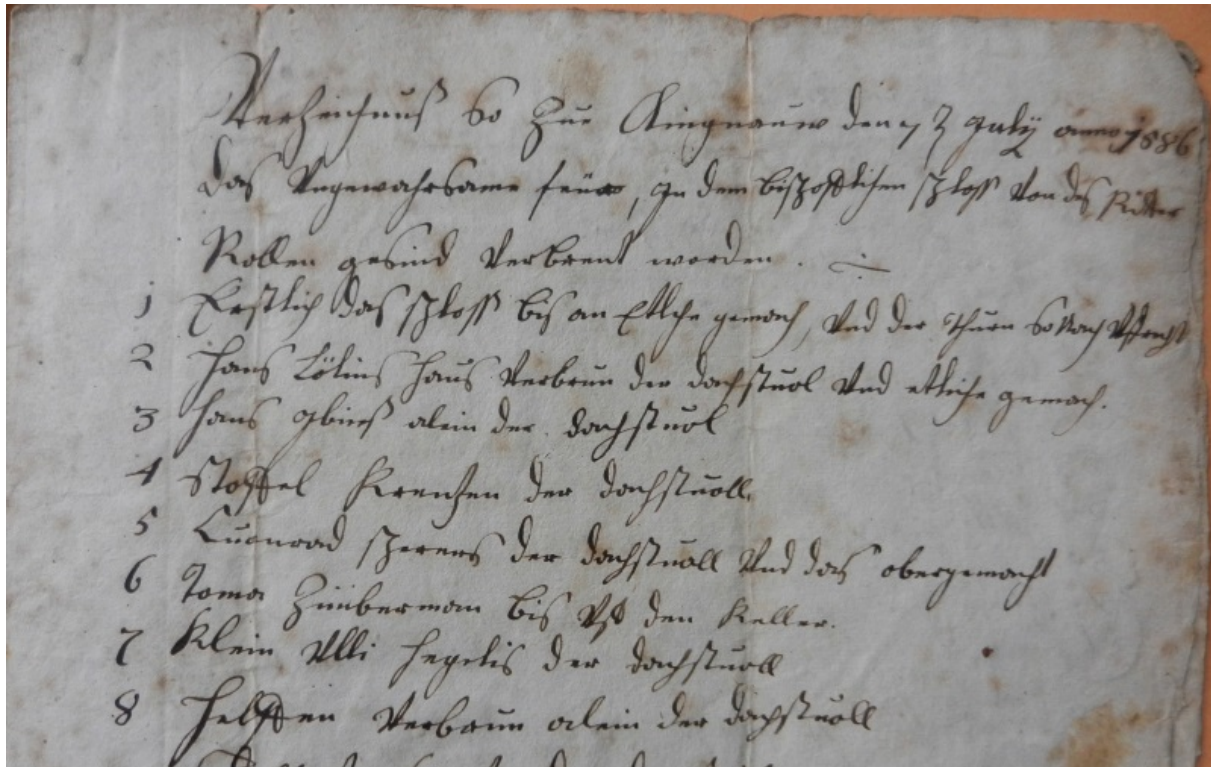 Verzeichnuß so zue Klingnauw den 7 July anno 1586
das Vngewahrsame feüwr, In dem bischofflichen schloss von des Ritter
Rollen gesind verbrent worden.
1 Erstlich das schloss bis an Etliche gemach, vnd der Thurn so Nach Vffrecht
2 Hans Lölins Haus verbrun der dachstuol vnd etliche gemach.
3 Hans alein der dachstuol
4 Stoffel der dachstuoll.
5 Cuonrad scherers der dachstuoll vnd das obergemacht
6 Toma Zimberman bis vff den Keller.
7 Klein Vlli Hegelis der dachstuoll
8 verbrun alein der dachstuoll